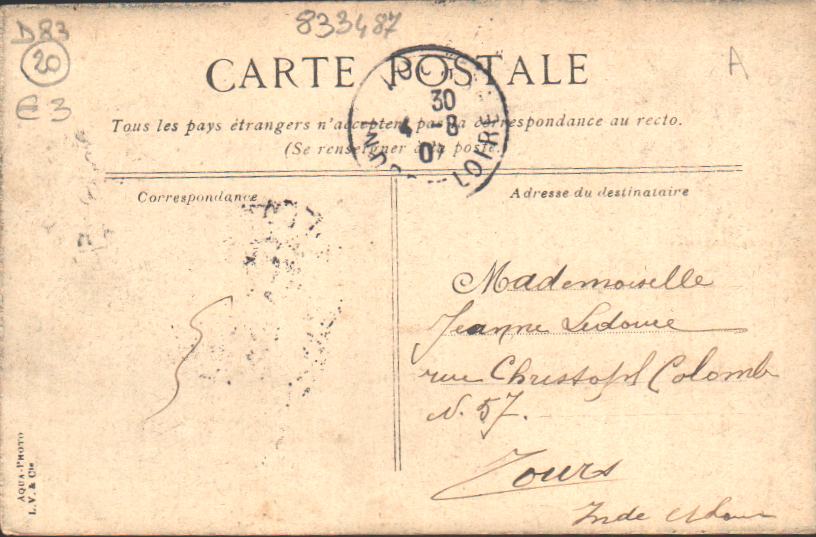 D83
833487
20
A
CARTE POSTALE
30
4 - 8
0
LOIRE
Tous les pays étrangers n'acceptent pas la correspondance au recto.
(Se renseigner à la poste.)
Correspondance
Adresse du destinataire
Mademoiselle
Jeanne
rue Christoph Colomb
N. 57.
Tours
Indre
AQUA-PHOTO
L. V. & Cie